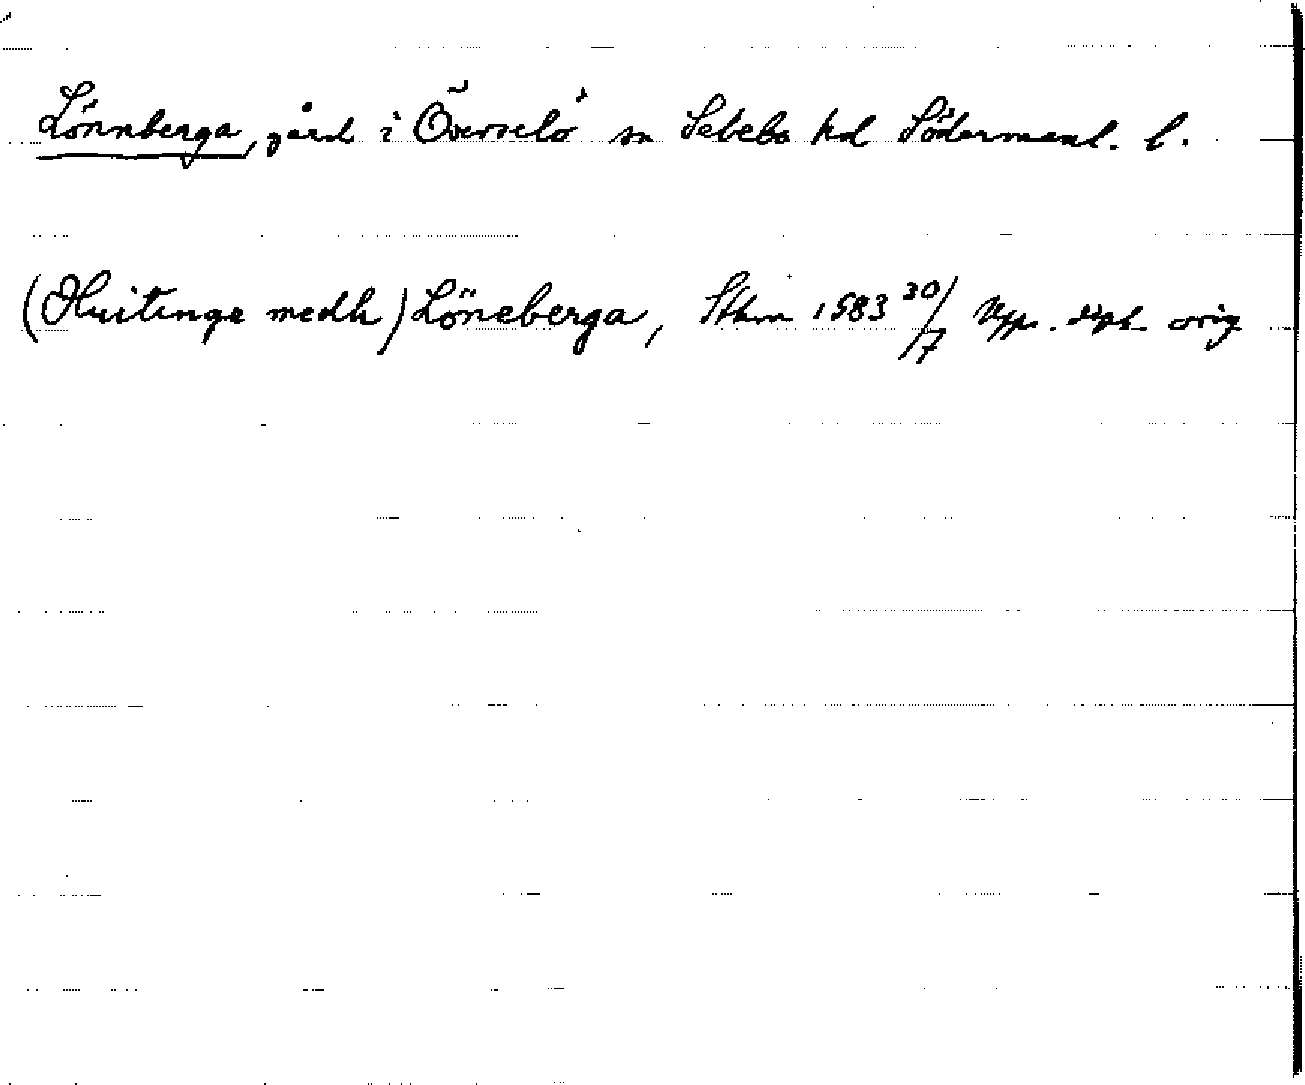 Lönnberga, gård i Överselö sn Selebo hd Södermanl. l.
(Huitinge medh) Löneberga, Sthm 1583 30/7 Upps. dipl. orig